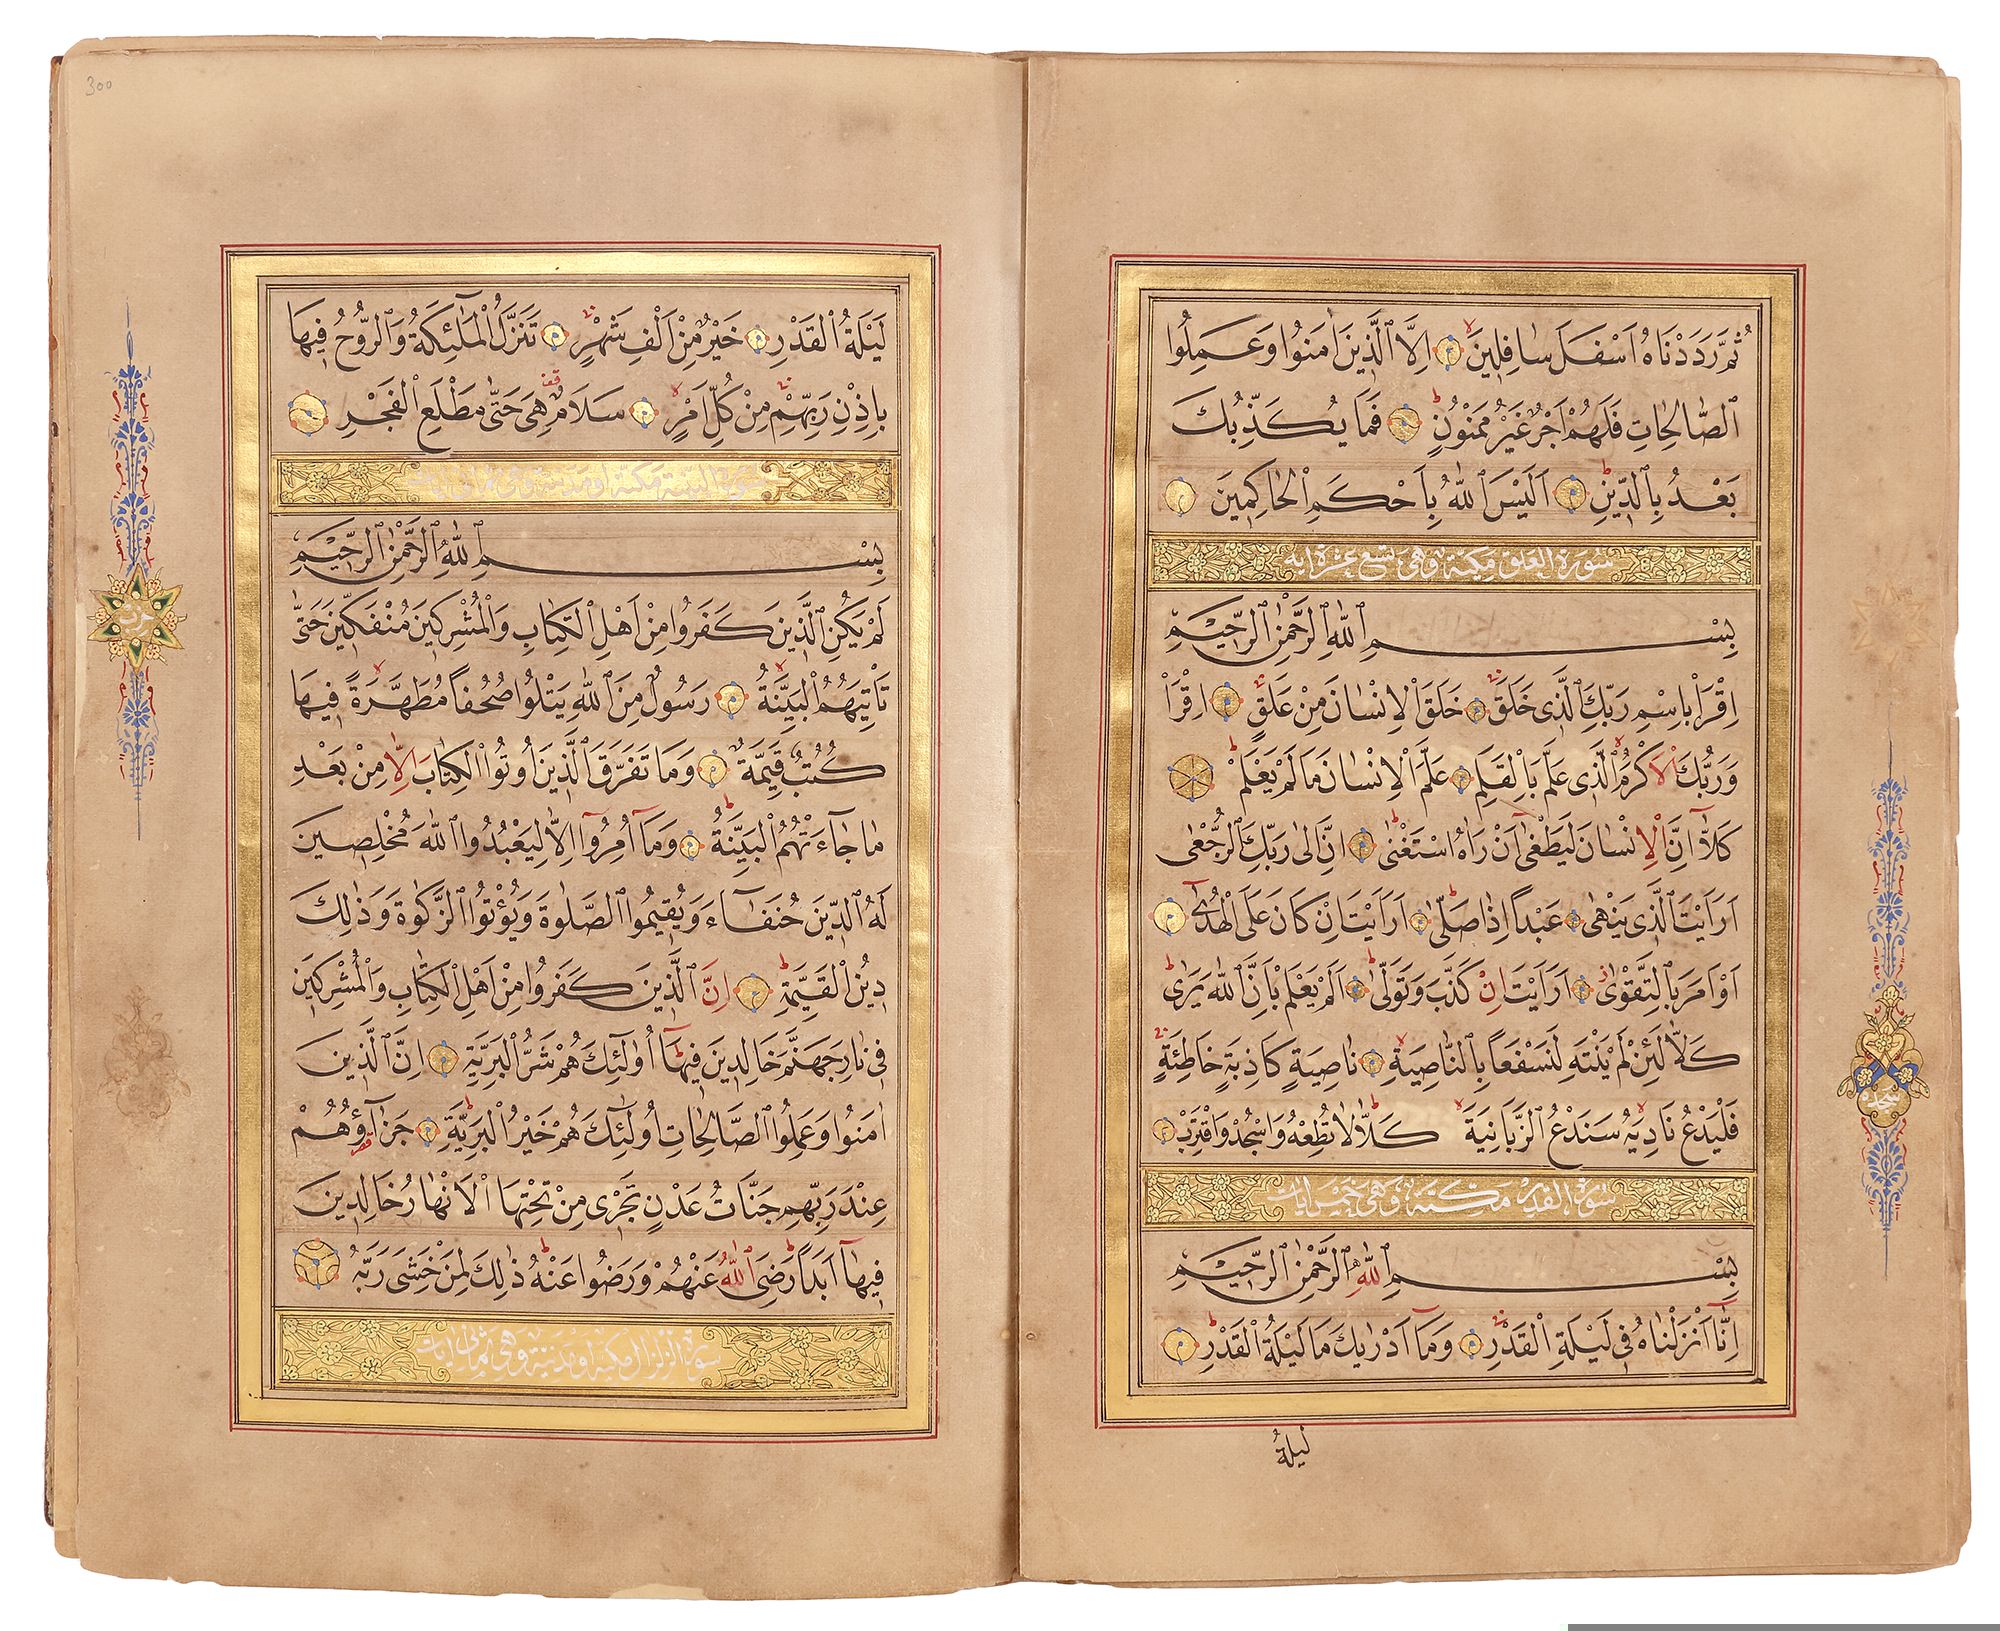 ثُمَّ رَدَدْنَاهُ اَسْفَلَ سَافِلِينَ اِلَّا الَّذِينَ اٰمَنُوا وَعَمِلُوا
الصَّالِحَاتِ فَلَهُمْ اَجْرٌ غَيْرُ مَمْنُونٍ فَمَا يُكَذِّبُكَ
بَعْدُ بِالدِّينِ اَلَيْسَ اللّٰهُ بِاَحْكَمِ الْحَاكِمِينَ
سورة العلق مكية وهي تسع عشرة اية
بِسْمِ اللّٰهِ الرَّحْمٰنِ الرَّحِيمِ
اِقْرَاْ بِاسْمِ رَبِّكَ الَّذِى خَلَقَ خَلَقَ الْاِنْسَانَ مِنْ عَلَقٍ اِقْرَاْ
وَرَبُّكَ الْاَكْرَمُ الَّذِى عَلَّمَ بِالْقَلَمِ عَلَّمَ الْاِنْسَانَ مَا لَمْ يَعْلَمْ
كَلَّا اِنَّ الْاِنْسَانَ لَيَطْغٰى اَنْ رَاٰهُ اسْتَغْنٰى اِنَّ اِلٰى رَبِّكَ الرُّجْعٰى
اَرَاَيْتَ الَّذِى يَنْهٰى عَبْدًا اِذَا صَلّٰى اَرَاَيْتَ اِنْ كَانَ عَلَى الْهُدٰى
اَوْ اَمَرَ بِالتَّقْوٰى اَرَاَيْتَ اِنْ كَذَّبَ وَتَوَلّٰى اَلَمْ يَعْلَمْ بِاَنَّ اللّٰهَ يَرٰى
كَلَّا لَئِنْ لَمْ يَنْتَهِ لَنَسْفَعًا بِالنَّاصِيَةِ نَاصِيَةٍ كَاذِبَةٍ خَاطِئَةٍ
فَلْيَدْعُ نَادِيَهُ سَنَدْعُ الزَّبَانِيَةَ كَلَّا لَا تُطِعْهُ وَاسْجُدْ وَاقْتَرِبْ
سجده
سورة القدر مكية وهي خمس ايات
بِسْمِ اللّٰهِ الرَّحْمٰنِ الرَّحِيمِ
اِنَّا اَنْزَلْنَاهُ فِى لَيْلَةِ الْقَدْرِ وَمَا اَدْرٰيكَ مَا لَيْلَةُ الْقَدْرِ
ليلةُ
300
لَيْلَةُ الْقَدْرِ خَيْرٌ مِنْ اَلْفِ شَهْرٍ تَنَزَّلُ الْمَلٰٓئِكَةُ وَالرُّوحُ فِيهَا
بِاِذْنِ رَبِّهِمْ مِنْ كُلِّ اَمْرٍ سَلَامٌ هِىَ حَتّٰى مَطْلَعِ الْفَجْرِ
سورة البينة مكية او مدنية وهي ثماني ايات
بِسْمِ اللّٰهِ الرَّحْمٰنِ الرَّحِيمِ
حزب
لَمْ يَكُنِ الَّذِينَ كَفَرُوا مِنْ اَهْلِ الْكِتَابِ وَالْمُشْرِكِينَ مُنْفَكِّينَ حَتّٰى
تَاْتِيَهُمُ الْبَيِّنَةُ رَسُولٌ مِنَ اللّٰهِ يَتْلُوا صُحُفًا مُطَهَّرَةً فِيهَا
كُتُبٌ قَيِّمَةٌ وَمَا تَفَرَّقَ الَّذِينَ اُوتُوا الْكِتَابَ اِلَّا مِنْ بَعْدِ
مَا جَاءَتْهُمُ الْبَيِّنَةُ وَمَا اُمِرُوا اِلَّا لِيَعْبُدُوا اللّٰهَ مُخْلِصِينَ
لَهُ الدِّينَ حُنَفَاءَ وَيُقِيمُوا الصَّلٰوةَ وَيُؤْتُوا الزَّكٰوةَ وَذٰلِكَ
دِينُ الْقَيِّمَةِ اِنَّ الَّذِينَ كَفَرُوا مِنْ اَهْلِ الْكِتَابِ وَالْمُشْرِكِينَ
فِى نَارِ جَهَنَّمَ خَالِدِينَ فِيهَا اُولٰئِكَ هُمْ شَرُّ الْبَرِيَّةِ اِنَّ الَّذِينَ
اٰمَنُوا وَعَمِلُوا الصَّالِحَاتِ اُولٰئِكَ هُمْ خَيْرُ الْبَرِيَّةِ جَزَاؤُهُمْ
عِنْدَ رَبِّهِمْ جَنَّاتُ عَدْنٍ تَجْرِى مِنْ تَحْتِهَا الْاَنْهَارُ خَالِدِينَ
فِيهَا اَبَدًا رَضِىَ اللّٰهُ عَنْهُمْ وَرَضُوا عَنْهُ ذٰلِكَ لِمَنْ خَشِىَ رَبَّهُ
سورة الزلزال مكية او مدنية وهي ثماني ايات